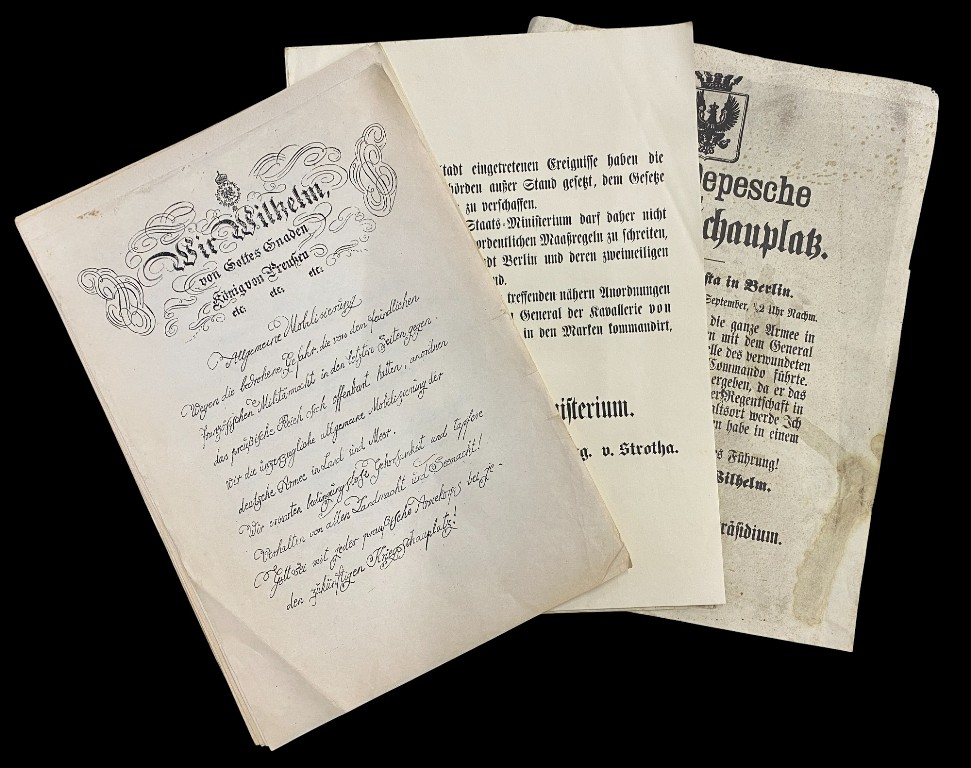 Wir Wilhelm,
von Gottes Gnaden
König von Preußen
etc. etc. etc.
Allgemeine Mobilisierung
Wegen die bedrohene Gefahr, die von dem feindlichen
französischen Militärmacht in den letzten Zeiten gegen
das preußische Reich sich offenbart hatten, anordnen
wir die unverzügliche allgemeine Mobilisierung der
deutsche Armee in Land und Meer.
Wir erwarten bedingungslose Gehorsamkeit und tapfere
Verhalten von allen Landmacht und Seemacht!
Gott sei mit jeder preußische Armekorps bei je-
den zukünftigen Kriegschauplatz!
tadt eingetretenen Ereignisse haben die
hörden außer Stand gesetzt, dem Gesetze
zu verschaffen.
Staats-Ministerium darf daher nicht
ordentlichen Maaßregeln zu schreiten,
dt Berlin und deren zweimeiligen
nd.
treffenden nähern Anordnungen
General der Kavallerie von
in den Marken kommandirt,
isterium.
g. v. Strotha.
Depesche
chauplatz.
sta in Berlin.
September, ½2 Uhr Nachm.
die ganze Armee in
n mit dem General
lle des verwundeten
Commando führte.
ergeben, da er das
der Regentschaft in
altsort werde Ich
n habe in einem
s Führung!
Wilhelm.
räsidium.